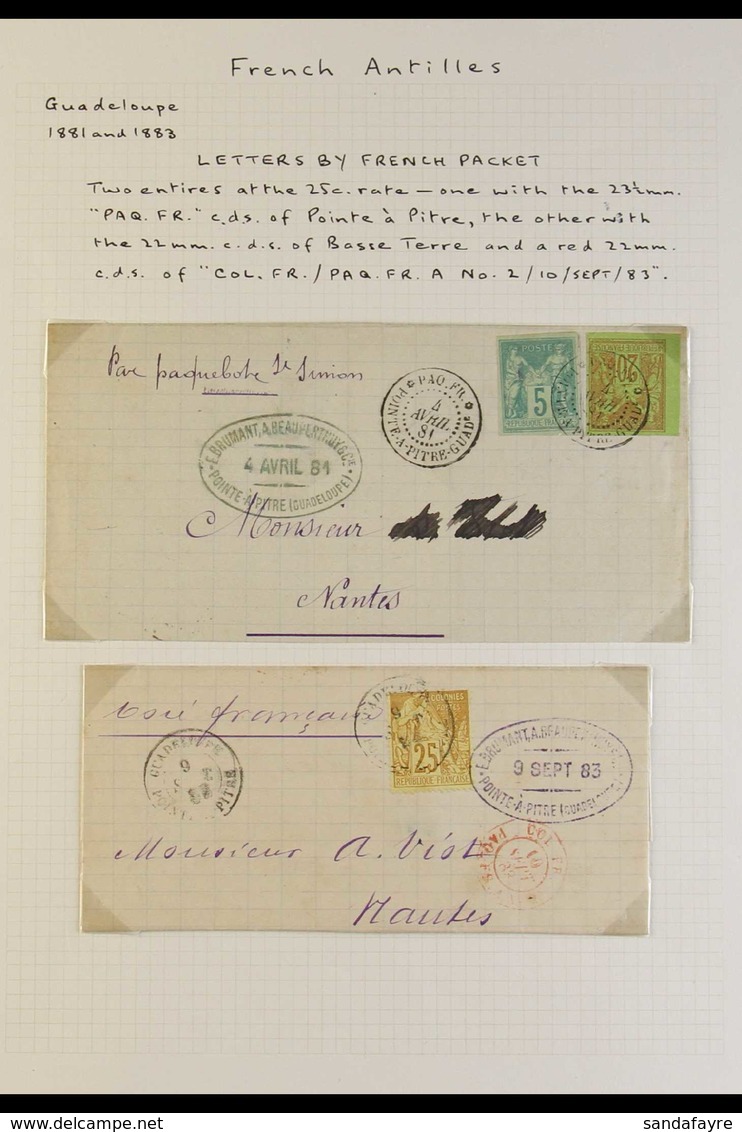 French Antilles
Guadeloupe
1881 and 1883
LETTERS BY FRENCH PACKET
Two entires at the 25c. rate — one with the 23½mm.
"PAQ. FR." c.d.s. of Pointe à Pitre, the other with
the 22mm. c.d.s. of Basse Terre and a red 22mm.
c.d.s. of "COL. FR./PAQ. FR. A No. 2/10/SEPT/83".
Par paquebote St Simon
PAQ. FR.
4
AVRIL
81
POINTE-A-PITRE-GUADE
POSTE
5
REPUBLIQUE
20
E. BRUMANT, A. BEAUPERTHUY & Cie
4 AVRIL 81
POINTE-À-PITRE (GUADELOUPE)
Monsieur
Nantes
Voie française
COLONIES
POSTES
25
REPUBLIQUE FRANÇAISE
GUADELOUPE
9
83
PITRE
E. BRUMANT, A.
9 SEPT 83
POINTE-À-PITRE (GUADELOUPE)
COL. FR.
Monsieur A. Viot
Nantes
sandafayre